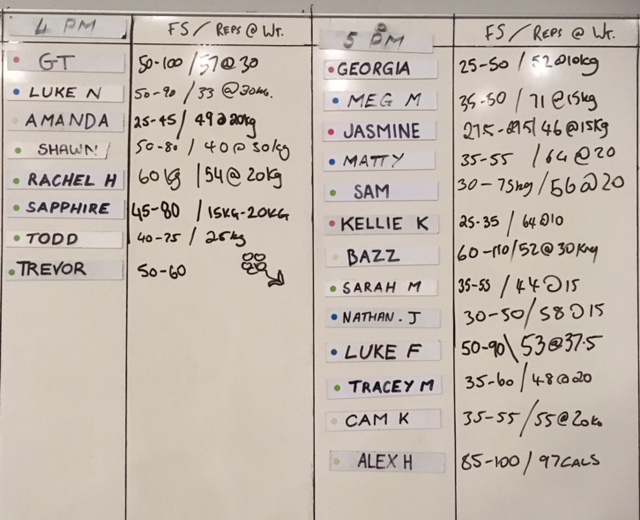 4 PM FS / REPS @ WT.
GT 50-100 / 57 @ 30
LUKE N 50-90 / 33 @ 30KG.
AMANDA 25-45 / 49 @ 20kg
SHAWN 50-80 / 40 @ 30kg
RACHEL H 60 kg / 54 @ 20kg
SAPPHIRE 45-80 / 15KG-20KG
TODD 40-75 / 25kg
TREVOR 50-60
5 PM FS / REPS @ WT.
GEORGIA 25-50 / 52@10kg
MEG M 35-50 / 71 @ 15kg
JASMINE / 46 @ 15kg
MATTY 35-55 / 64 @ 20
SAM 30-75kg / 56 @ 20
KELLIE K 25-35 / 64@10
BAZZ 60-110 / 52 @ 30kg
SARAH M 35-55 / 44@15
NATHAN.J 30-50 / 58@15
LUKE F 50-90 \ 53@37.5
TRACEY M 35-60 / 48@20
CAM K 35-55 / 55@20kg
ALEX H 85-100 / 97CALS